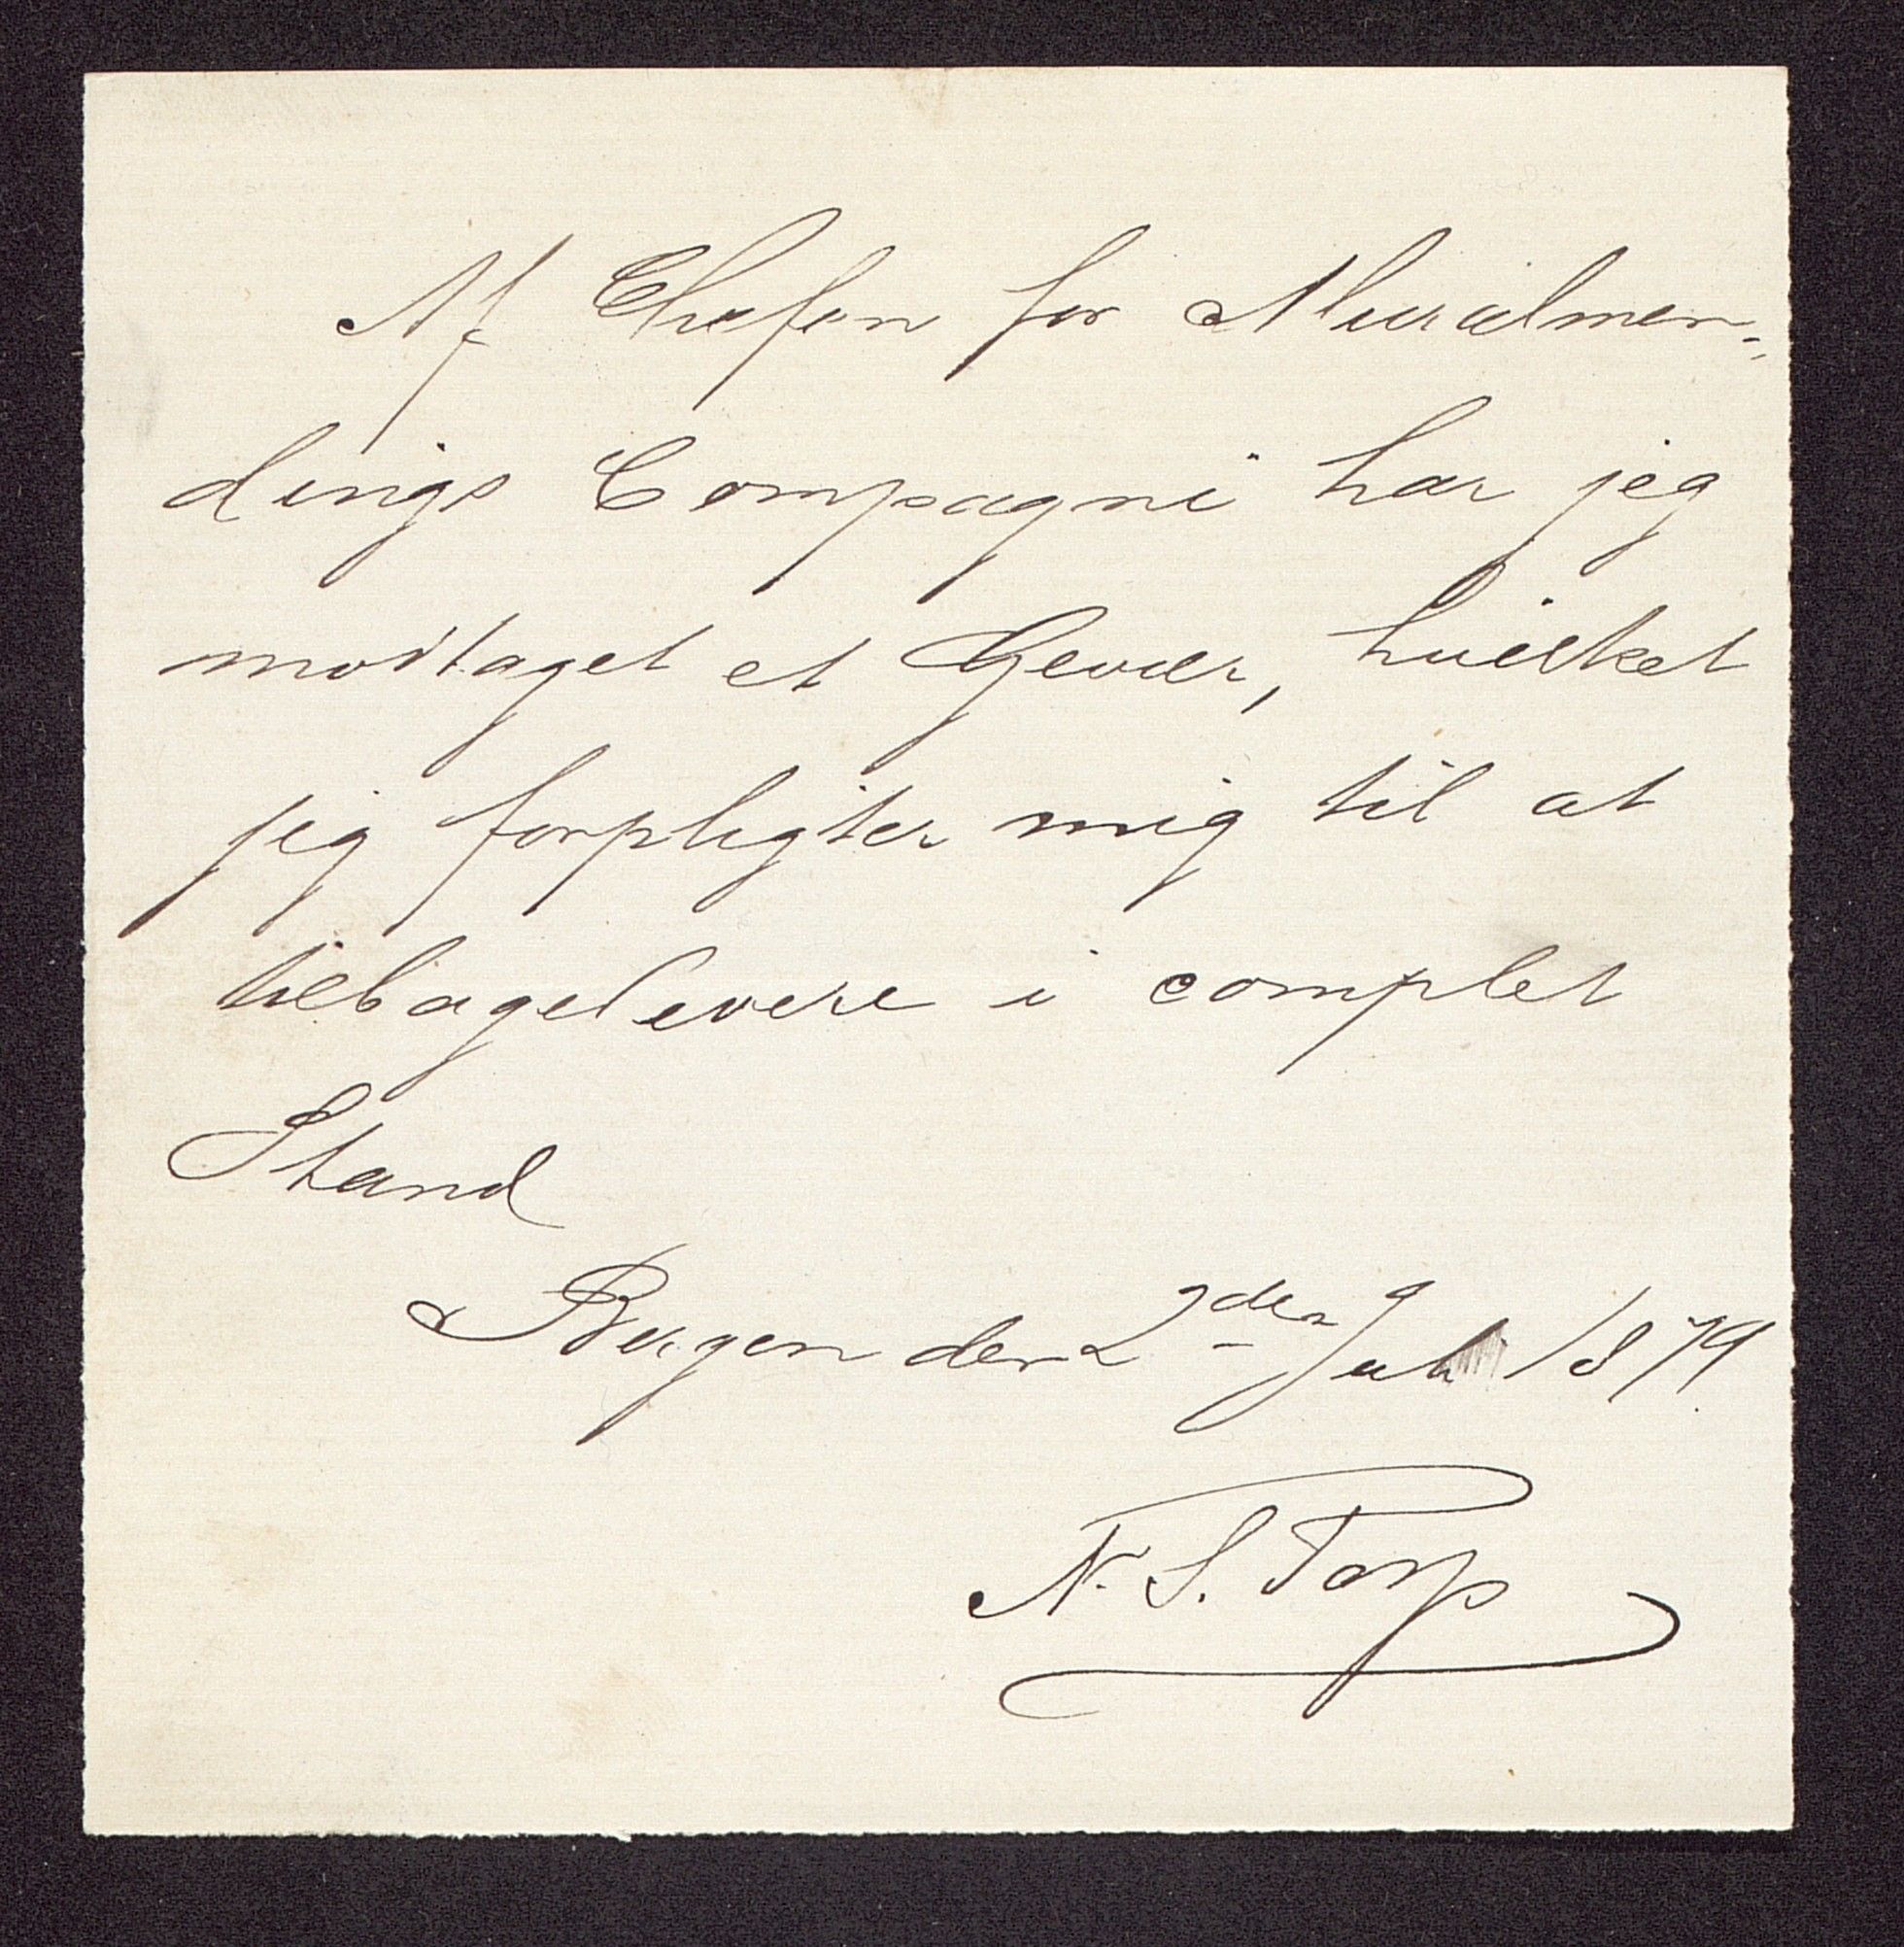 Af Chefen for Muralmen-
dings Compagni har jeg
modtaget et Gevær, hvilket
jeg forpligter mig til at
tilbagelevere i complet
Stand
Bergen den 2den Juli 1879
N. S. Torp